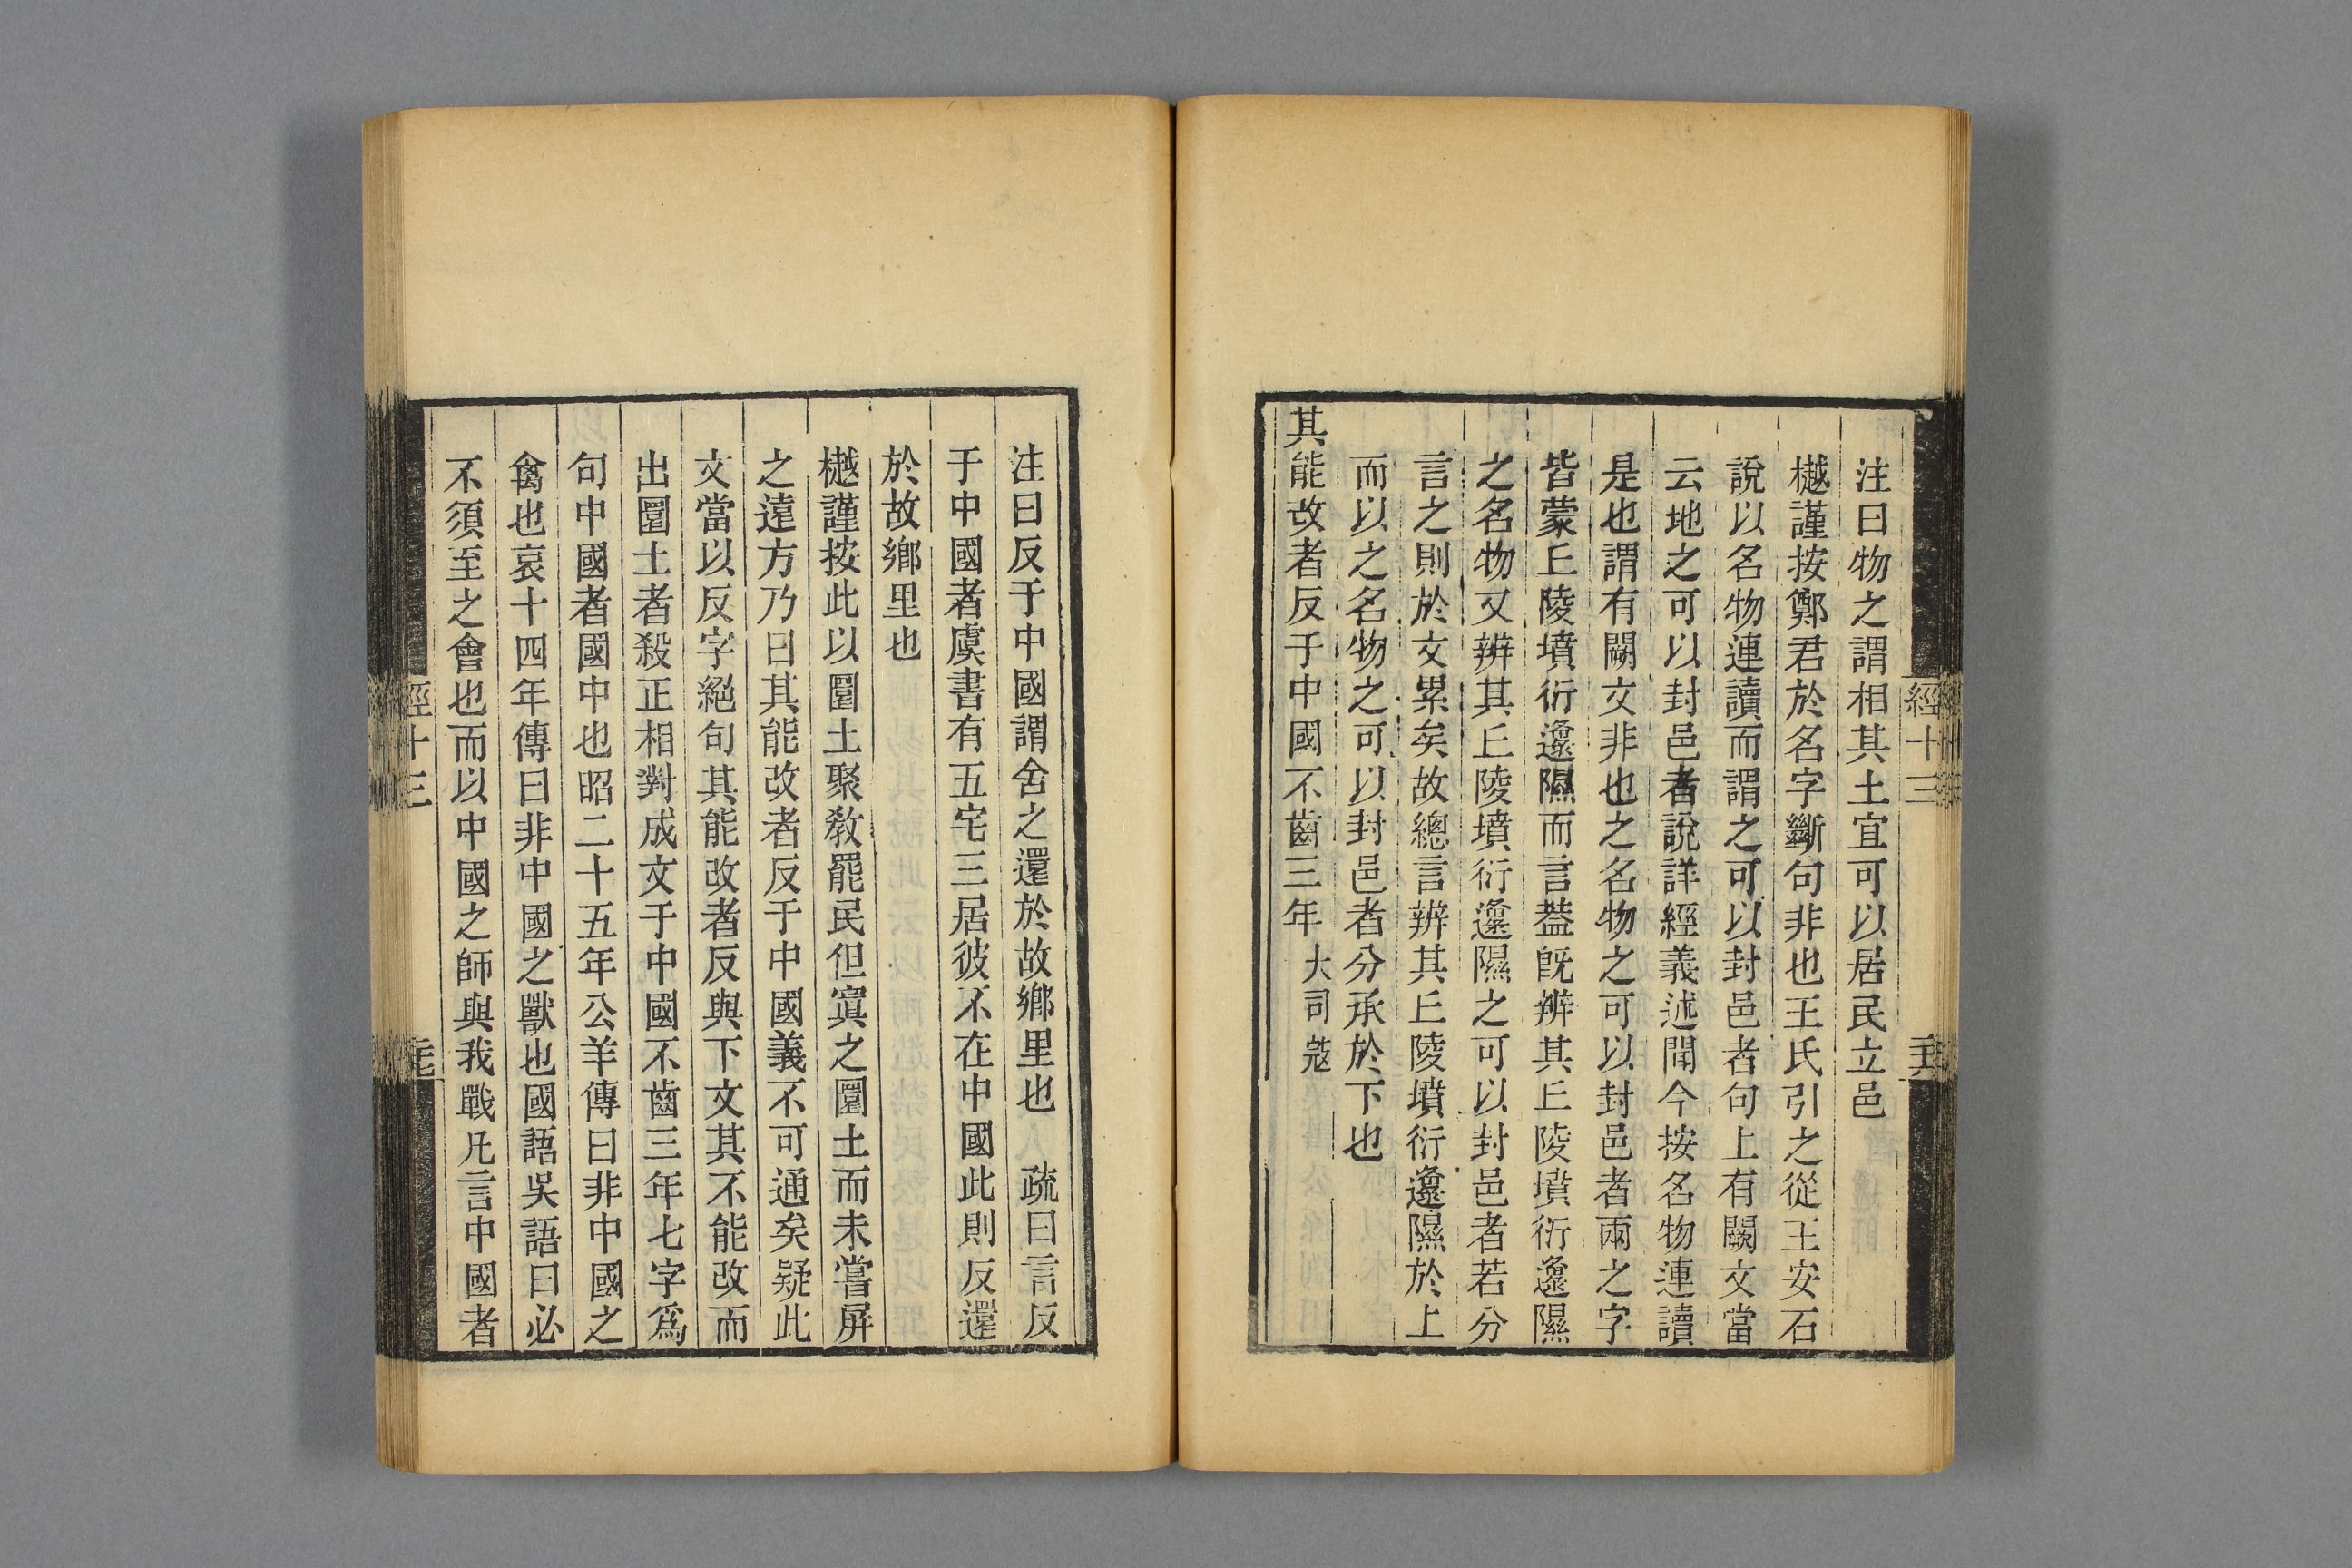 經十三
注曰物之謂相其土宜可以居民立邑
樾謹按鄭君於名字斷句非也王氏引之從王安石
說以名物連讀而謂之可以封邑者句上有闕文當
云地之可以封邑者說詳經義述聞今按名物連讀
是也謂有闕文非也之名物之可以封邑者兩之字
皆蒙丘陵墳衍邍隰而言葢旣辨其丘陵墳衍邍隰
之名物又辨其丘陵墳衍邍隰之可以封邑者若分
言之則於文累矣故總言辨其丘陵墳衍邍隰於上
而以之名物之可以封邑者分承於下也
其能改者反于中國不齒三年 大司蔻
注曰反于中國謂舍之還於故鄉里也 疏曰言反
于中國者虞書有五宅三居彼不在中國此則反還
於故鄉里也
樾謹按此以圜土聚敎罷民但寘之圜土而未嘗屏
之遠方乃曰其能改者反于中國義不可通矣疑此
文當以反字絕句其能改者反與下文其不能改而
出圜土者殺正相對成文于中國不齒三年七字爲
句中國者國中也昭二十五年公羊傳曰非中國之
禽也哀十四年傳曰非中國之獸也國語吳語曰必
不須至之會也而以中國之師與我戰凡言中國者
經十三